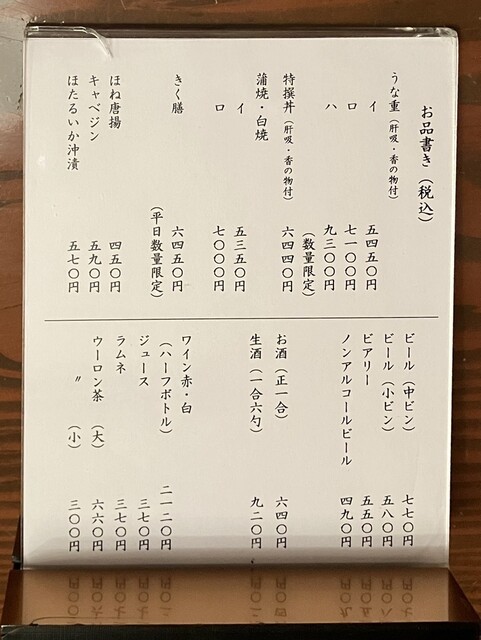 お品書き（税込）
うな重（肝吸・香の物付）
イ 五四五〇円
ロ 七一〇〇円
ハ 九三〇〇円
（数量限定）
特撰丼（肝吸・香の物付） 六四四〇円
蒲焼・白焼
イ 五三五〇円
ロ 七〇〇〇円
きく膳 六四五〇円
（平日数量限定）
ほね唐揚 四五〇円
キャベジン 五九〇円
ほたるいか沖漬 五七〇円
ビール（中ビン） 七七〇円
ビール（小ビン） 五八〇円
ビアリー 五五〇円
ノンアルコールビール 四九〇円
お酒（正一合） 六四〇円
生酒（一合六勺） 九二〇円
ワイン赤・白
（ハーフボトル） 二一二〇円
ジュース 三七〇円
ラムネ 三七〇円
ウーロン茶（大） 六六〇円
〃（小） 三〇〇円